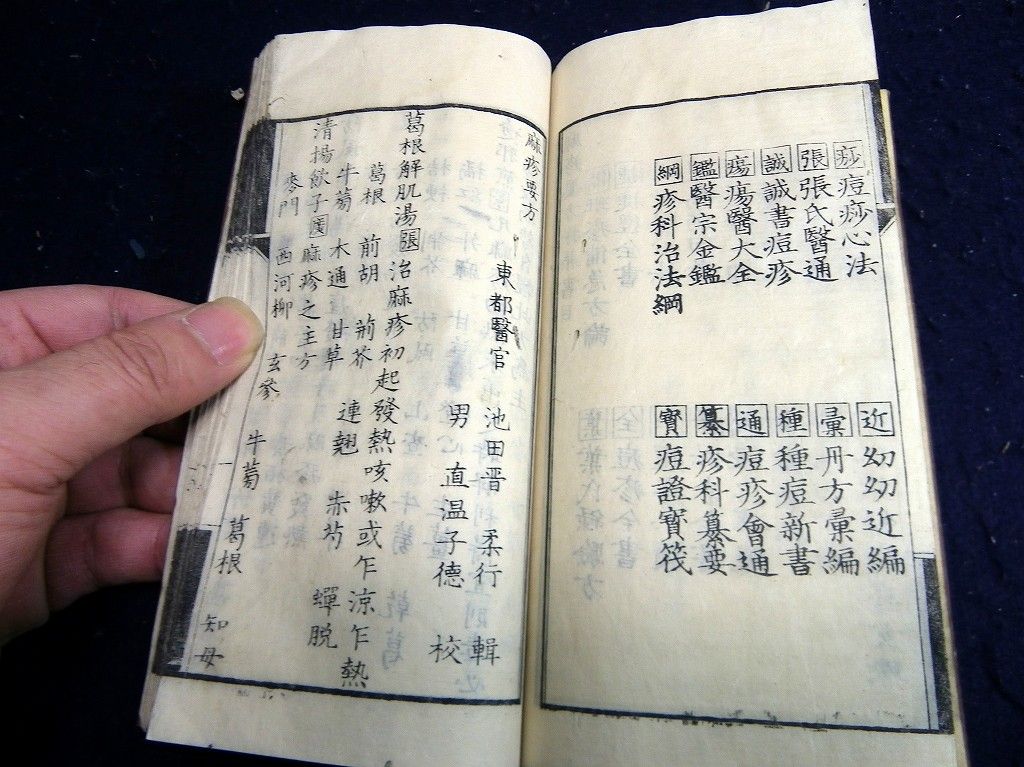 痧 痘痧心法
張 張氏醫通
誠 誠書痘疹
瘍 瘍醫大全
鑑 醫宗金鑑
綱 疹科治法綱
近 幼幼近編
彙 丹方彙編
種 種痘新書
通 痘疹會通
纂 疹科纂要
寶 痘證寶筏
麻疹要方
東都醫官 池田晋 柔行 輯
男 直温子德 校
葛根解肌湯 張 治麻疹初起發熱咳嗽或乍涼乍熱
葛根 前胡 荊芥 連翹 赤芍 蟬脱
牛蒡 木通 甘草
清揚飲子 廣 麻疹之主方
麥門 西河柳 玄參 牛蒡 葛根 知母